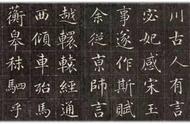 川古人有言
宓妃感宋王
事遂作斯賦
余從京師言
越轘轅經通
西傾車殆馬
蘅皋秣駟乎